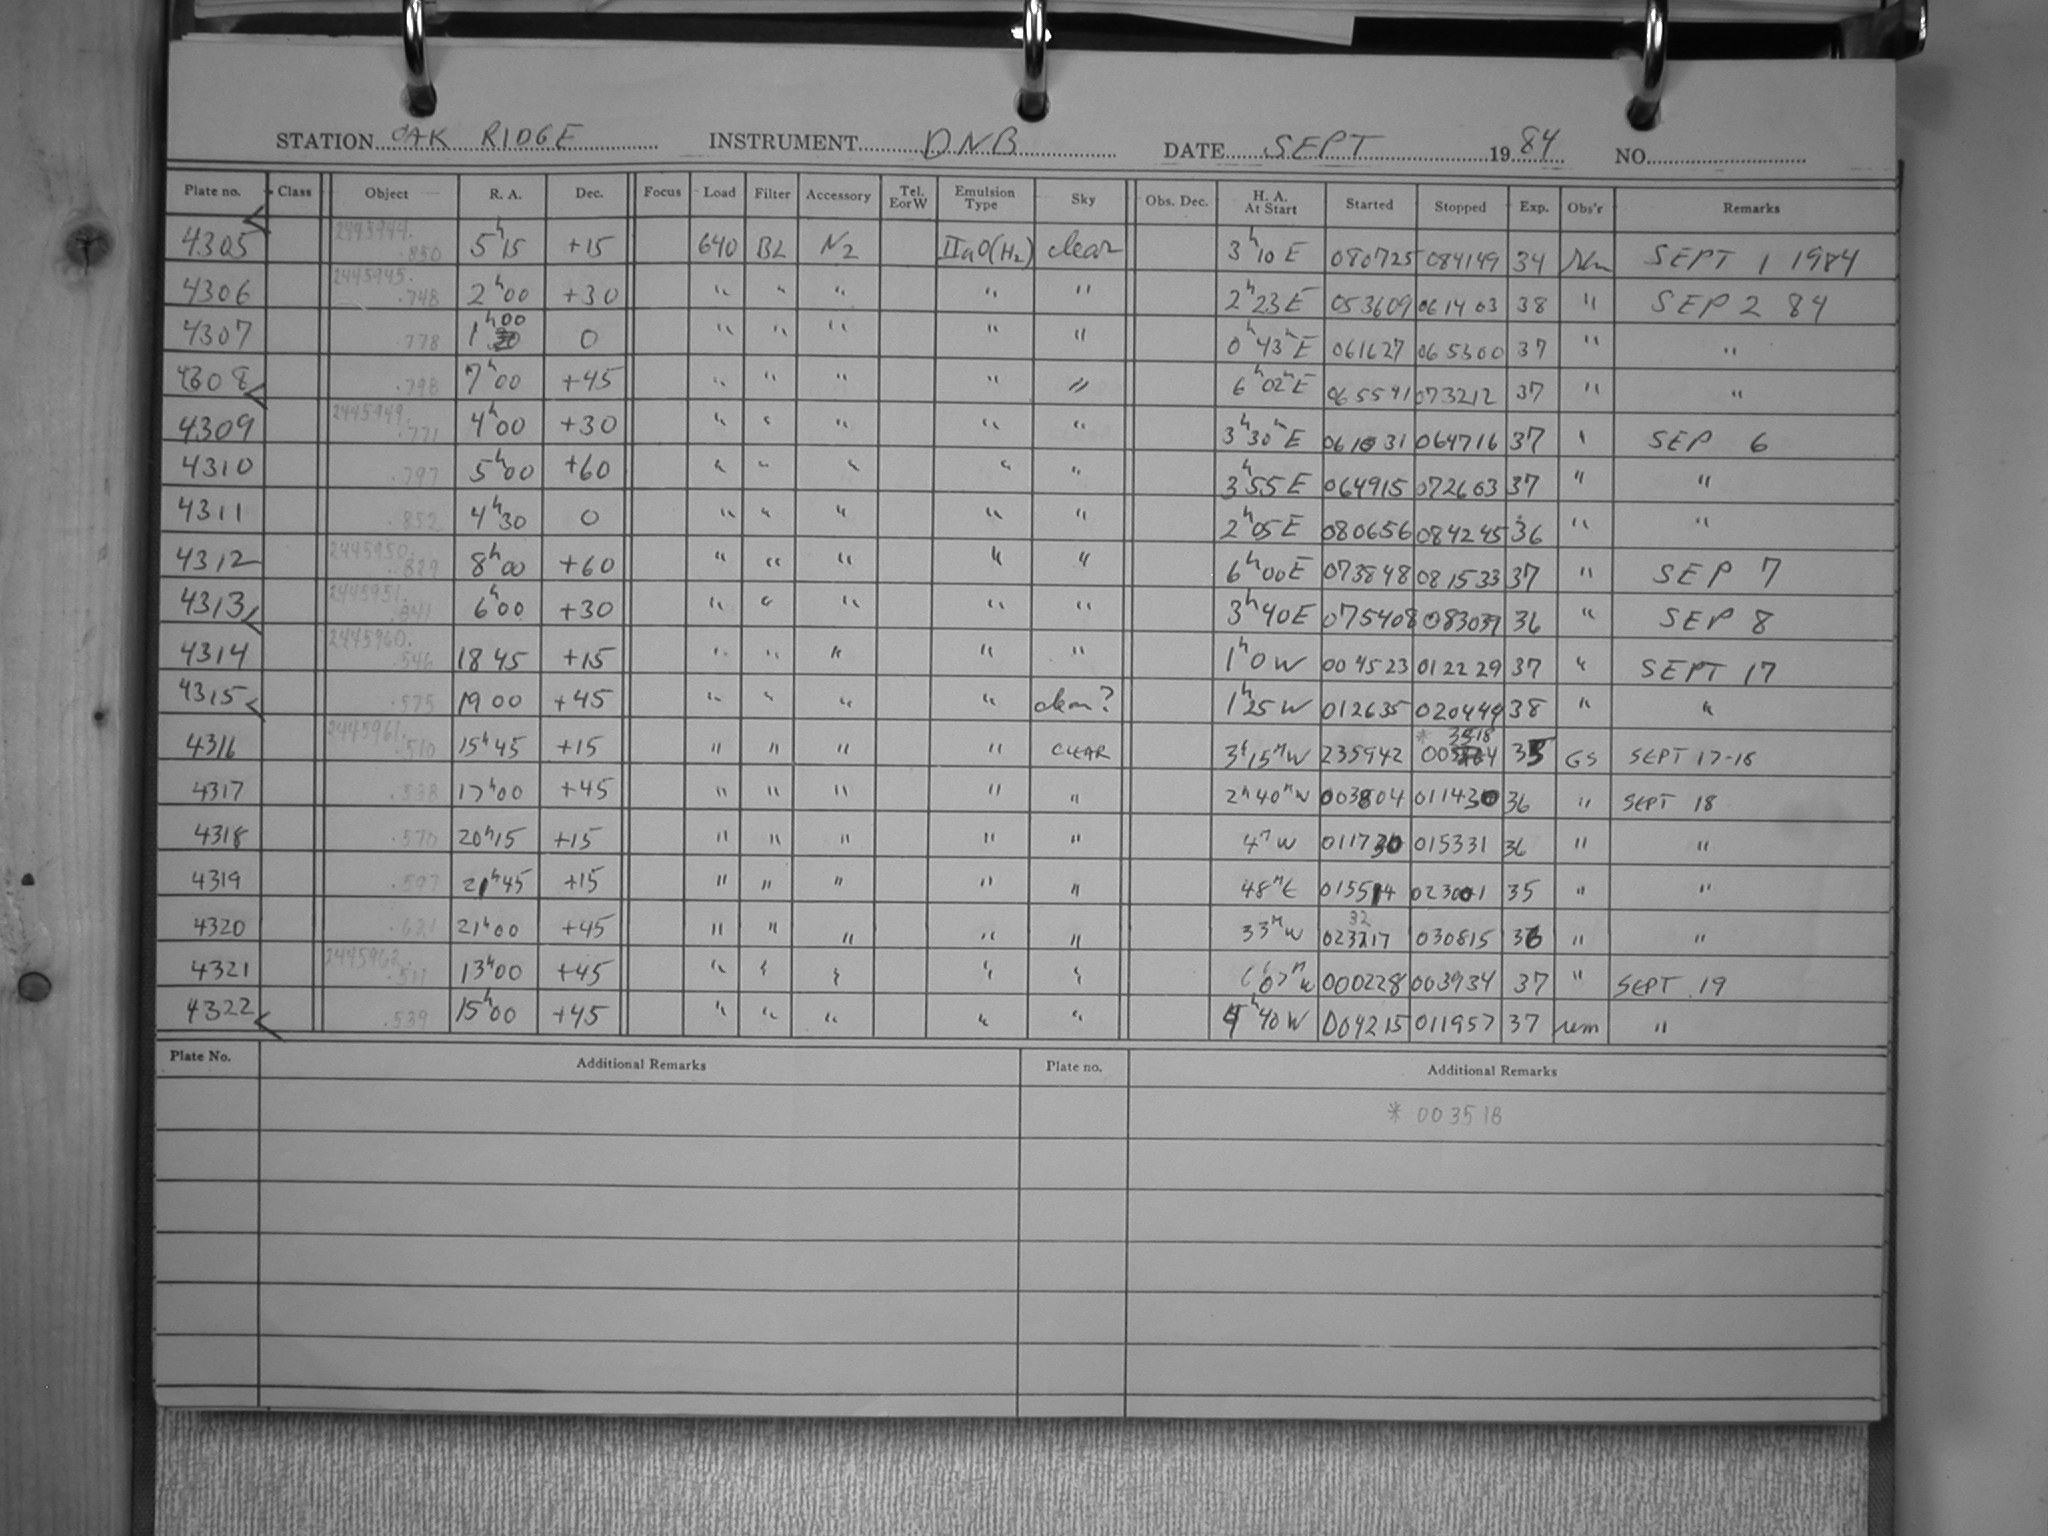 STATION OAK RIDGE INSTRUMENT DNB DATE SEPT 1984 NO.
Plate no. Class Object R. A. Dec. Focus Load Filter Accessory Tel. EorW Emulsion Type Sky Obs. Dec. H. A. At Start Started Stopped Exp. Obs'r Remarks
4305 .850 5h15 +15 640 BL N2 IIaO(H2) clear 3h10 E 080725 084149 34 SEPT 1 1984
4306 2445945. .748 2h00 +30 " " " " " 2h23E 053609 061403 38 " SEP 2 84
4307 .778 1h00 0 " " " " " 0h43mE 061627 065300 37 " "
4308 .798 7h00 +45 " " " " " 6h02mE 065541 073212 37 " "
4309 2445949. .771 4h00 +30 " " " " " 3h30mE 061031 064716 37 " SEP 6
4310 .797 5h00 +60 " " " " " 3h55E 064915 072603 37 " "
4311 .852 4h30 0 " " " " " 2h05E 080656 084245 36 " "
4312 2445950. .829 8h00 +60 " " " " " 6h00E 073848 081533 37 " SEP 7
4313 2445951. .841 6h00 +30 " " " " " 3h40E 075408 083039 36 " SEP 8
4314 2445960. .546 18 45 +15 " " " " " 1h0W 004523 012229 37 " SEPT 17
4315 .575 19 00 +45 " " " " clear? 1h25W 012635 020449 38 " "
4316 2445961. .510 15h45 +15 " " " " CLEAR 3h15mW 235942 * 3518 35 GS SEPT 17-18
4317 .538 17h00 +45 " " " " " 2h40mW 003804 011430 36 " SEPT 18
4318 .570 20h15 +15 " " " " " 4mW 011730 015331 36 " "
4319 .597 21h45 +15 " " " " " 48mE 015514 023001 35 " "
4320 .621 21h00 +45 " " " " " 33mW 32 023217 030815 36 " "
4321 2445962. .511 13h00 +45 " " " " " 6h07mW 000228 003934 37 " SEPT 19
4322 .539 15h00 +45 " " " " " 4h40W 004215 011957 37 "
Plate No. Additional Remarks Plate no. Additional Remarks
* 003518